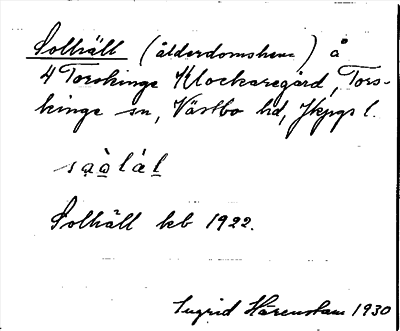 Solhäll (ålderdomshem) å
4 Torskinge Klockaregård, Tors-
kinge sn, Västbo hd, Jkpgs l.
Solhäll kb 1922.
Ingrid Härenstam 1930